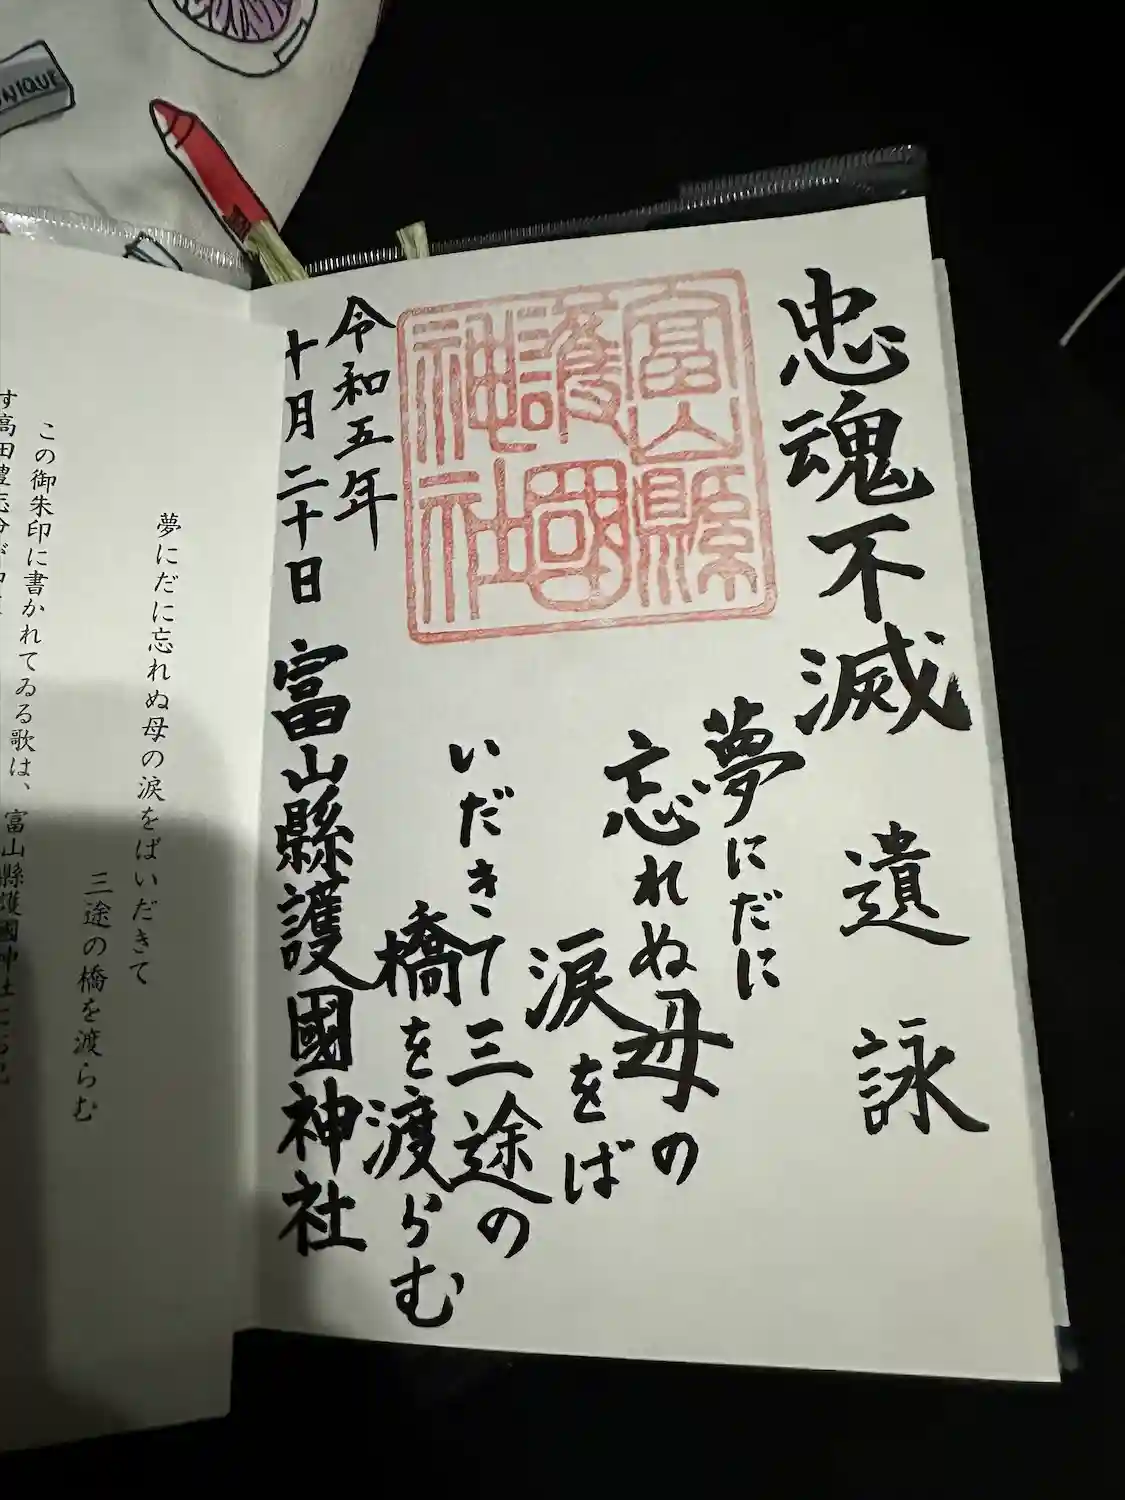 忠魂不滅　遺詠
夢にだに
忘れぬ母の
涙をば
いだきて三途の
橋を渡らむ
富山縣
護國
神社
令和五年
十月二十日　富山縣護國神社
夢にだに忘れぬ母の涙をばいだきて
三途の橋を渡らむ
この御朱印に書かれてゐる歌は、富山縣護國神社にお祀
す高田豊志
UNIQUE